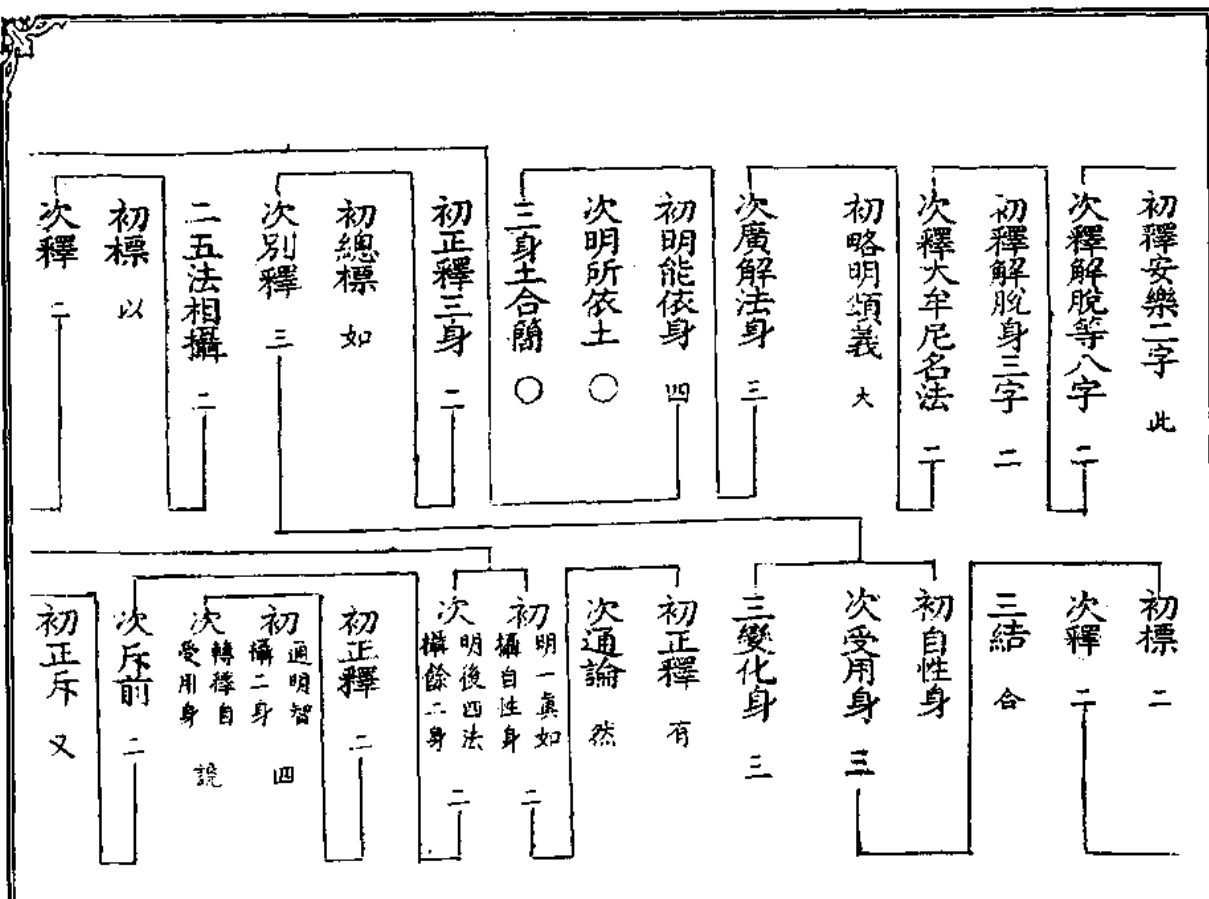 初釋安樂二字 此
次釋解脫等八字 二
初釋解脫身三字 二
次釋大牟尼名法 二
初略明頌義 大
次廣解法身 三
初明能依身 四
次明所依土 〇
三身土合簡 〇
初正釋三身 二
初總標 如
次別釋 三
二五法相攝 二
初標 以
次釋 二
初標 二
次釋 二
三結 合
初自性身
次受用身 三
三變化身 三
初正釋 有
次通論 然
初明一真如攝自性身 二
次明後四法攝餘二身 二
初正釋 二
初通明智攝二身 四
次轉釋自受用身 說
次斥前 二
初正斥 又